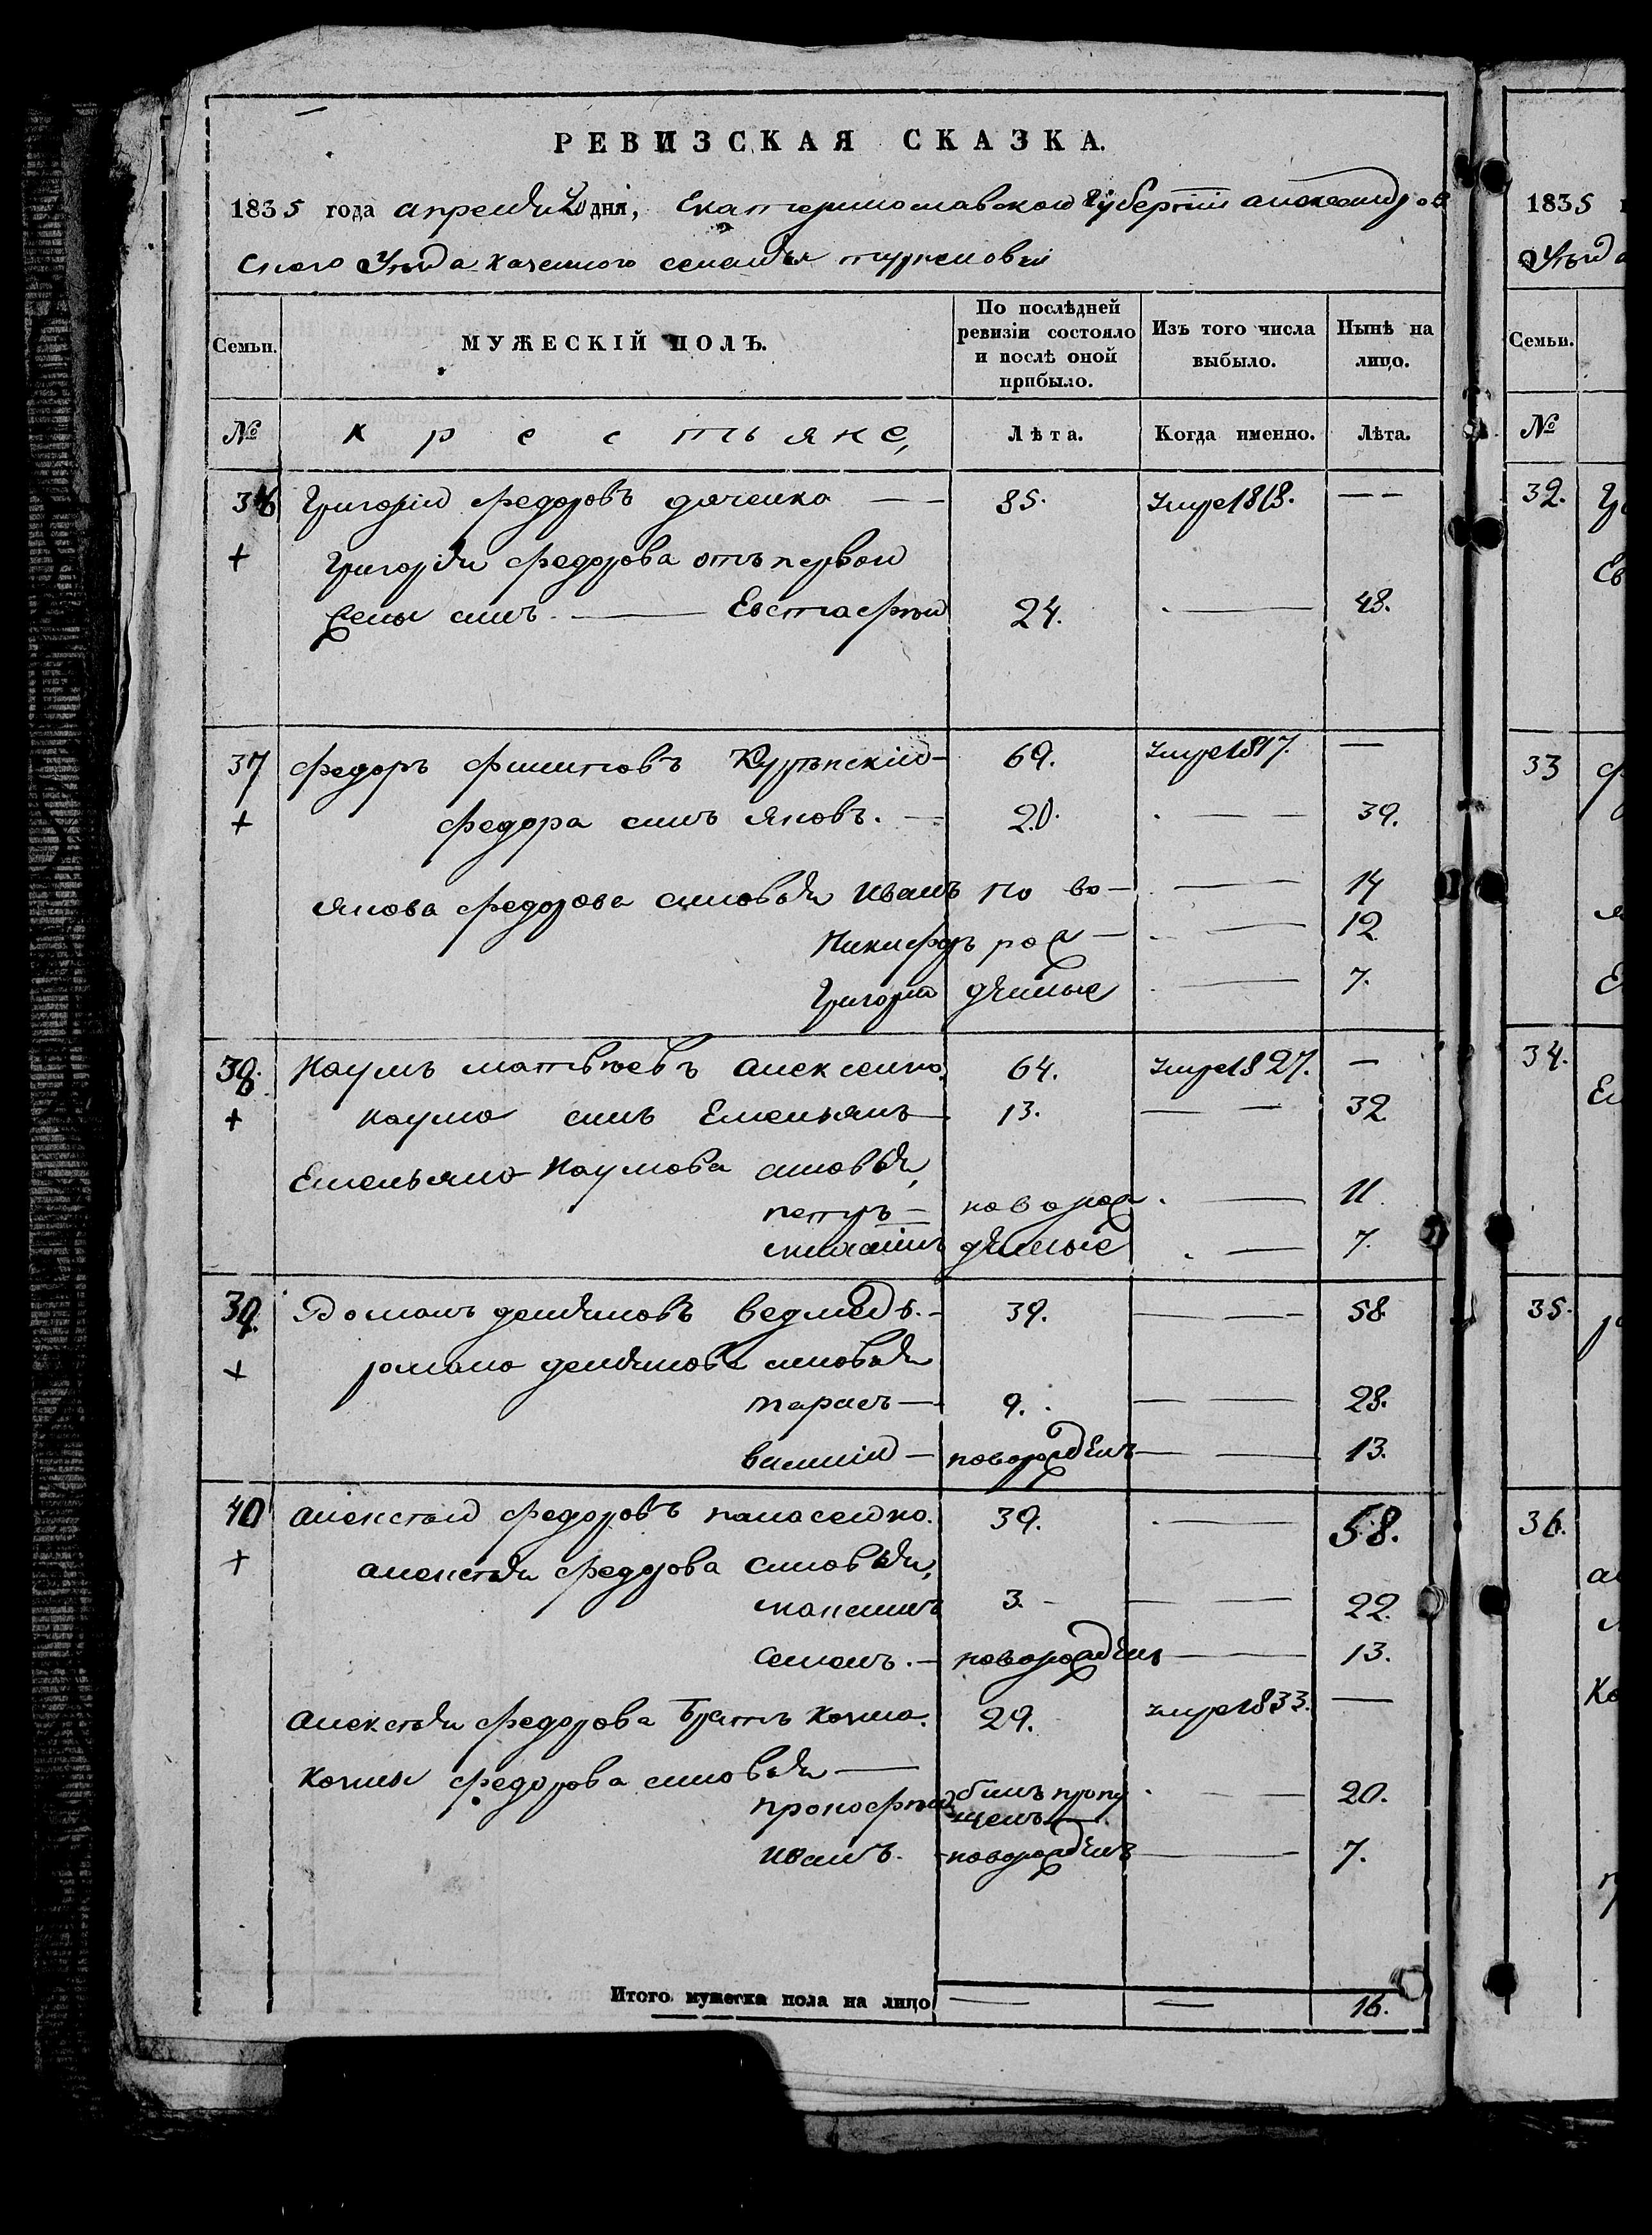 РЕВИЗСКАЯ СКАЗКА.
1835 года апреля 20 дня, Екатеринославской губернии александров
ского Уезда казенного селения
Семьи. МУЖЕСКІЙ ПОЛЪ. По послѣдней ревизіи состояло и послѣ оной прибыло. Изъ того числа выбыло. Нынѣ на лицо.
№ крестьяне, Лѣта. Когда именно. Лѣта.
36 Григорій федоровъ дяченко — — 85. умре 1818. — —
+ Григорія федорова отъ первой
жены сынъ. — Евстафѣй 24. — 48.
37 федоръ филиповъ 69. умре 1817. —
+ федора сынъ яковъ. — 20. — — 39.
якова федорова сыновья иванъ но во — — 14
Никифоръ рож — — 12
Григорій денные — 7.
38. Наумъ матвѣевъ алексенко. 64. умре 1827. —
+ наума сынъ Емельянъ 13. — — 32
Емельяна Наумова сыновья,
петръ — новорож — 11.
михаилъ денные — 7.
39. Романъ демяновъ ведмедь. — 39. — — 58.
+ романа демянова сыновья
тарасъ — 9. — — 28.
василій — новорожденъ — — 13.
40 алексѣй федоровъ панасенко. 39. — 58.
+ алексѣя федорова сыновья,
максимъ 3. — — — 22.
Семенъ. — новорожденъ — 13.
алексѣя федорова братъ козма. 29. умре 1833. —
козмы федорова сыновья —
прокофѣй былъ пропу — — 20.
щенъ —
иванъ. — новорожденъ — — 7.
Итого мужеска пола на лицо — — 16.
1835
Уѣзда
Семьи.
№
32.
33
34.
35.
36.